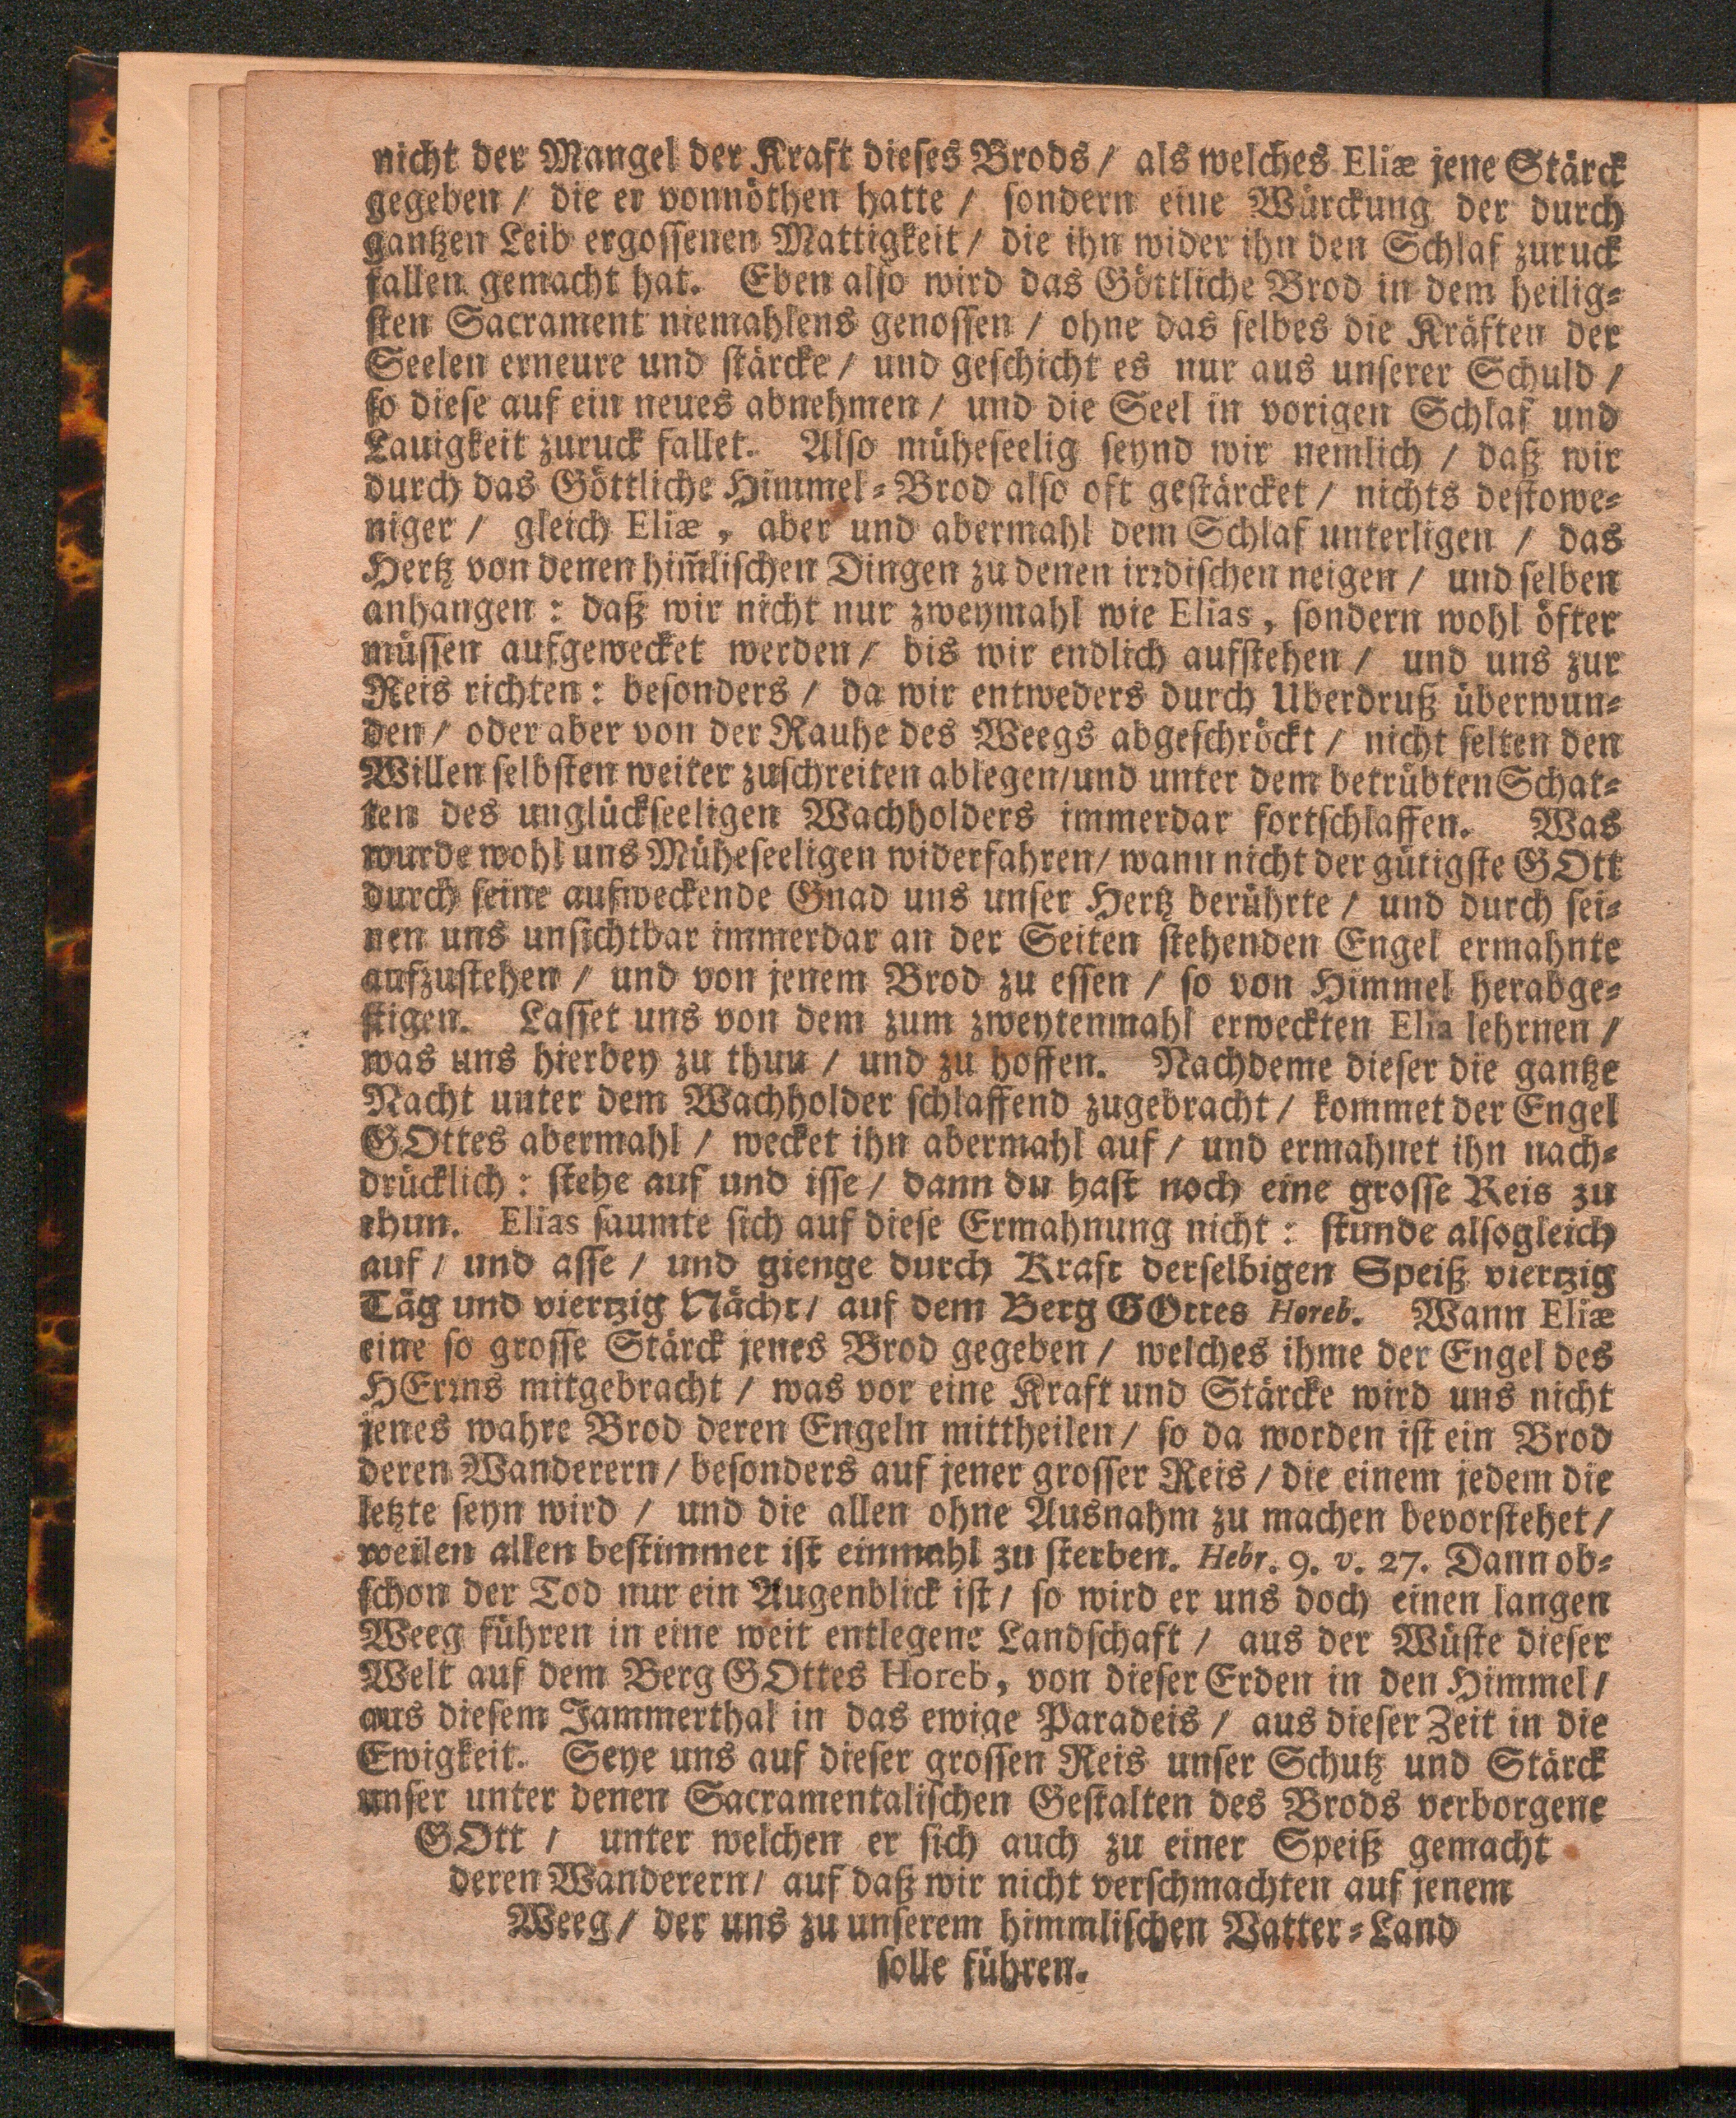 nicht der Mangel der Kraft dieses Brods / als welches Eliæ jene Stärck
gegeben / die er vonnöthen hatte / sondern eine Würckung der durch
gantzen Leib ergossenen Mattigkeit / die ihn wider ihn den Schlaf zuruck
fallen gemacht hat. Eben also wird das Göttliche Brod in dem heilig-
sten Sacrament niemahlens genossen / ohne das selbes die Kräften der
Seelen erneure und stärcke / und geschicht es nur aus unserer Schuld /
so diese auf ein neues abnehmen / und die Seel in vorigen Schlaf und
Lauigkeit zuruck fallet. Also müheseelig seynd wir nemlich / daß wir
durch das Göttliche Himmel-Brod also oft gestärcket / nichts destowe-
niger / gleich Eliæ, aber und abermahl dem Schlaf unterligen / das
Hertz von denen him̃lischen Dingen zu denen irꝛdischen neigen / und selben
anhangen : daß wir nicht nur zweymahl wie Elias, sondern wohl öfter
müssen aufgewecket werden / bis wir endlich aufstehen / und uns zur
Reis richten : besonders / da wir entweders durch Uberdruß überwun-
den / oder aber von der Rauhe des Weegs abgeschröckt / nicht selten den
Willen selbsten weiter zuschreiten ablegen/und unter dem betrübten Schat-
ten des unglückseeligen Wachholders immerdar fortschlaffen. Was
wurde wohl uns Müheseeligen widerfahren/ wann nicht der gütigste GOtt
durch seine aufweckende Gnad uns unser Hertz berührte / und durch sei-
nen uns unsichtbar immerdar an der Seiten stehenden Engel ermahnte
aufzustehen / und von jenem Brod zu essen / so von Himmel herabge-
stigen. Lasset uns von dem zum zweytenmahl erweckten Elia lehrnen /
was uns hierbey zu thun / und zu hoffen. Nachdeme dieser die gantze
Nacht unter dem Wachholder schlaffend zugebracht / kommet der Engel
GOttes abermahl / wecket ihn abermahl auf / und ermahnet ihn nach-
drücklich : stehe auf und isse / dann du hast noch eine grosse Reis zu
thun. Elias saumte sich auf diese Ermahnung nicht : stunde alsogleich
auf / und asse / und gienge durch Kraft derselbigen Speiß viertzig
Täg und viertzig Nächt / auf dem Berg GOttes Horeb. Wann Eliæ
eine so grosse Stärck jenes Brod gegeben / welches ihme der Engel des
HErꝛns mitgebracht / was vor eine Kraft und Stärcke wird uns nicht
jenes wahre Brod deren Engeln mittheilen / so da worden ist ein Brod
deren Wanderern / besonders auf jener grosser Reis / die einem jedem die
letzte seyn wird / und die allen ohne Ausnahm zu machen bevorstehet /
weilen allen bestimmet ist einmahl zu sterben. Hebr. 9. v. 27. Dann ob-
schon der Tod nur ein Augenblick ist / so wird er uns doch einen langen
Weeg führen in eine weit entlegene Landschaft / aus der Wüste dieser
Welt auf dem Berg GOttes Horeb, von dieser Erden in den Himmel /
aus diesem Jammerthal in das ewige Paradeis / aus dieser Zeit in die
Ewigkeit. Seye uns auf dieser grossen Reis unser Schutz und Stärck
unser unter denen Sacramentalischen Gestalten des Brods verborgene
GOtt / unter welchen er sich auch zu einer Speiß gemacht
deren Wanderern / auf daß wir nicht verschmachten auf jenem
Weeg / der uns zu unserem himmlischen Vatter-Land
solle führen.